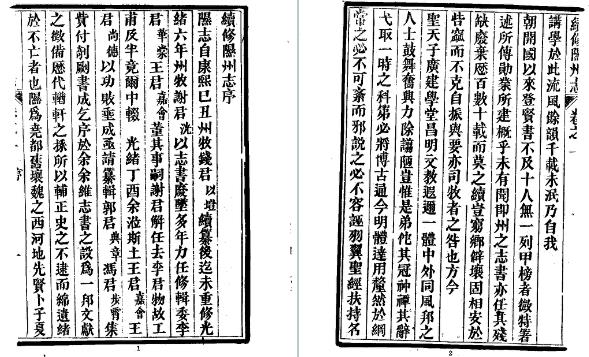 續修隰州志序
隰志自康熙己丑州牧錢君以塏續纂後迄未重修光
緒六年州牧謝君洸以志書廢墜多年力任修輯委李
君華蒙王君嘉會董其事嗣謝君解任去李君物故工
甫及半竟爾中輟 光緒丁酉余涖斯土王君嘉會王
君尚德以功敗垂成亟請纂輯郭君典章馮君步霄集
貲付剞劂書成乞序於余余維志書之設爲一邦文獻
之徵備歷代輶軒之採所以輔正史之不逮而綿遺緒
於不亡者也隰爲堯都舊壤魏之西河地先賢卜子夏
序
1
續修隰州志 卷之一
講學於此流風餘韻千載未泯乃自我
朝開國以來登賢書不及十人無一列甲榜者微特著
述所傳勛業所建概乎未有聞即州之志書亦任其殘
缺廢棄歷百數十載而莫之續豈窮鄉僻壤固相安於
呰窳而不克自振與要亦司牧者之咎也方今
聖天子廣建學堂昌明文教遐邇一體中外同風邦之
人士鼓舞奮興力除謭陋豈惟是弟佗其冠神禫其辭
弋取一時之科第必將博古通今明體達用釐然於綱
常之必不可紊而邪說之必不容誣羽翼聖經扶持名
2